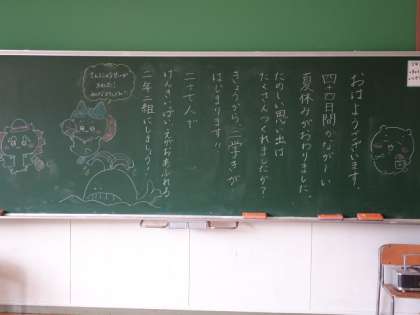 おはようございます。
四十四日間のながーい
夏休みがおわりました。
たのしい思い出は
たくさんつくれましたか？
きょうから、二学きが
はじまります!!
二十七人で
げんきいっぱい、えがおあふれる
二年二組にしましょう!